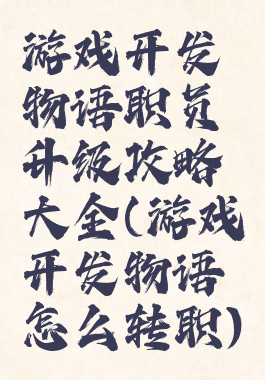 游戏开发
物语职员
升级攻略
大全(游戏
开发物语
怎么转职)